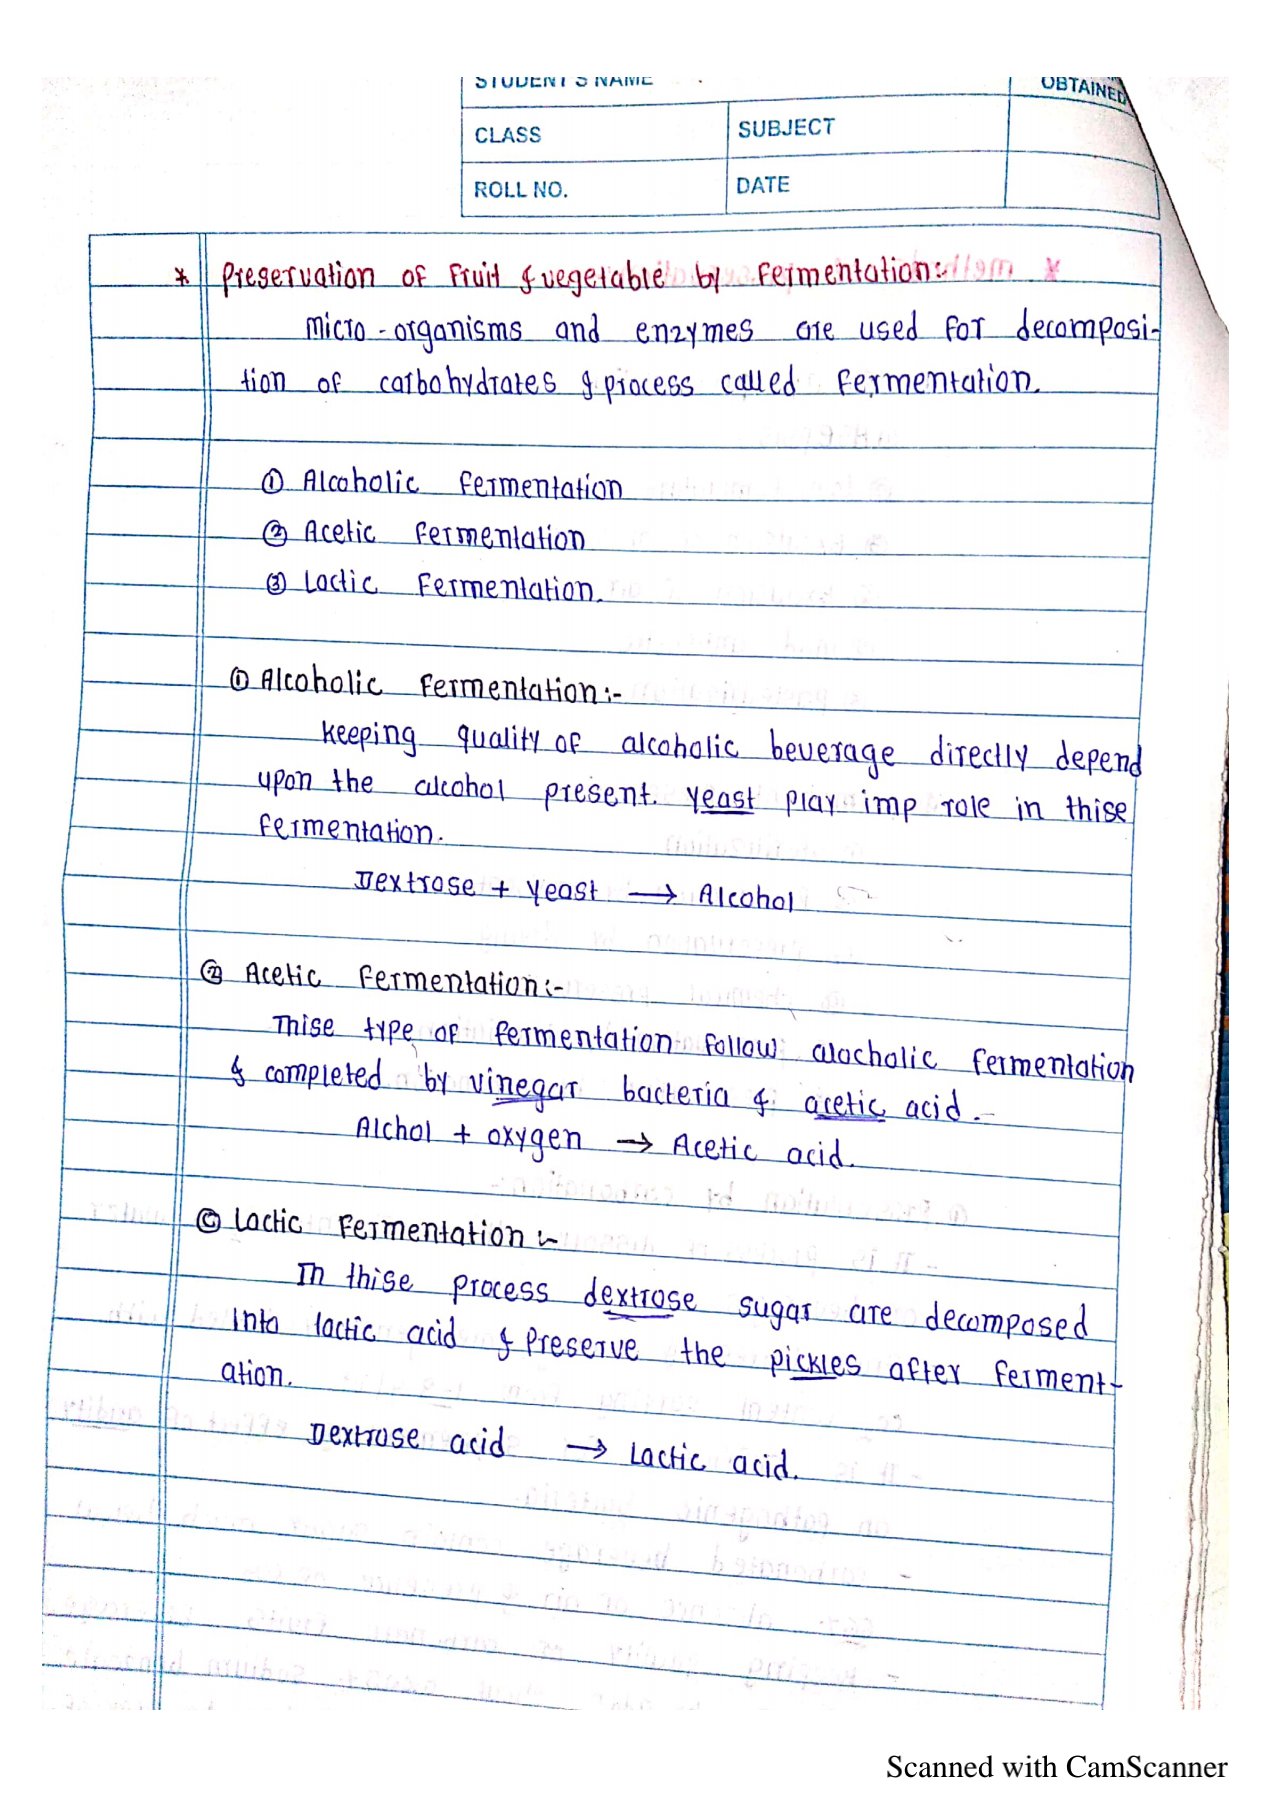 STUDENT'S NAME
OBTAINED
CLASS
SUBJECT
ROLL NO.
DATE
* Preservation of Fruit & vegetable by Fermentation:-
micro-organisms and enzymes are used for decomposi-
tion of carbohydrates & process called Fermentation.
① Alcoholic Fermentation
② Acetic Fermentation
③ Lactic Fermentation.
① Alcoholic Fermentation:-
keeping quality of alcoholic beverage directly depend
upon the alcohol present. yeast play imp role in thise
fermentation.
Dextrose + yeast → Alcohol
② Acetic Fermentation:-
Thise type of fermentation follow alocholic fermentation
& completed by vinegar bacteria & acetic acid.
Alchol + oxygen → Acetic acid.
© Lactic Fermentation :-
In thise process dextrose sugar are decomposed
into lactic acid & preserve the pickles after ferment-
ation.
Dextrose acid → Lactic acid.
Scanned with CamScanner